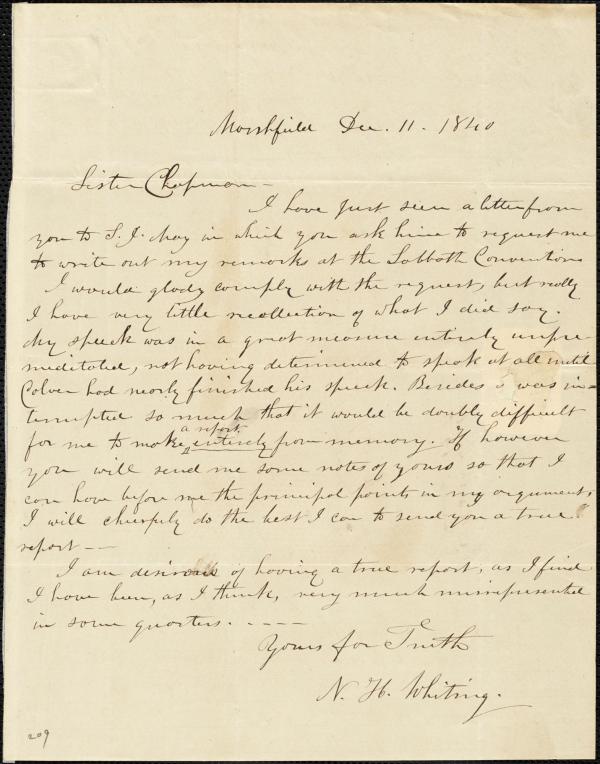 Marshfield Dec. 11. 1840
Sister Chapman -
I have just seen a letter from
you to S. J. May in which you ask him to request me
to write out my remarks at the Sabbath Convention
I would gladly comply with the request, but really
I have very little recollection of what I did say.
My speech was in a great measure entirely unpre-
meditated, not having determined to speak at all until
Colver had nearly finished his speech. Besides I was in-
terrupted so much that it would be doubly difficult
a report
for me to make entirely from memory. If however
you will send me some notes of yours so that I
can have before me the principal points in my argument,
I will cheerfuly do the best I can to send you a true
report --
I am desirous of having a true report, as I find
I have been, as I think, very much misrepresented
in some quarters. - - - -
Yours for Truth
N. H. Whiting.
209